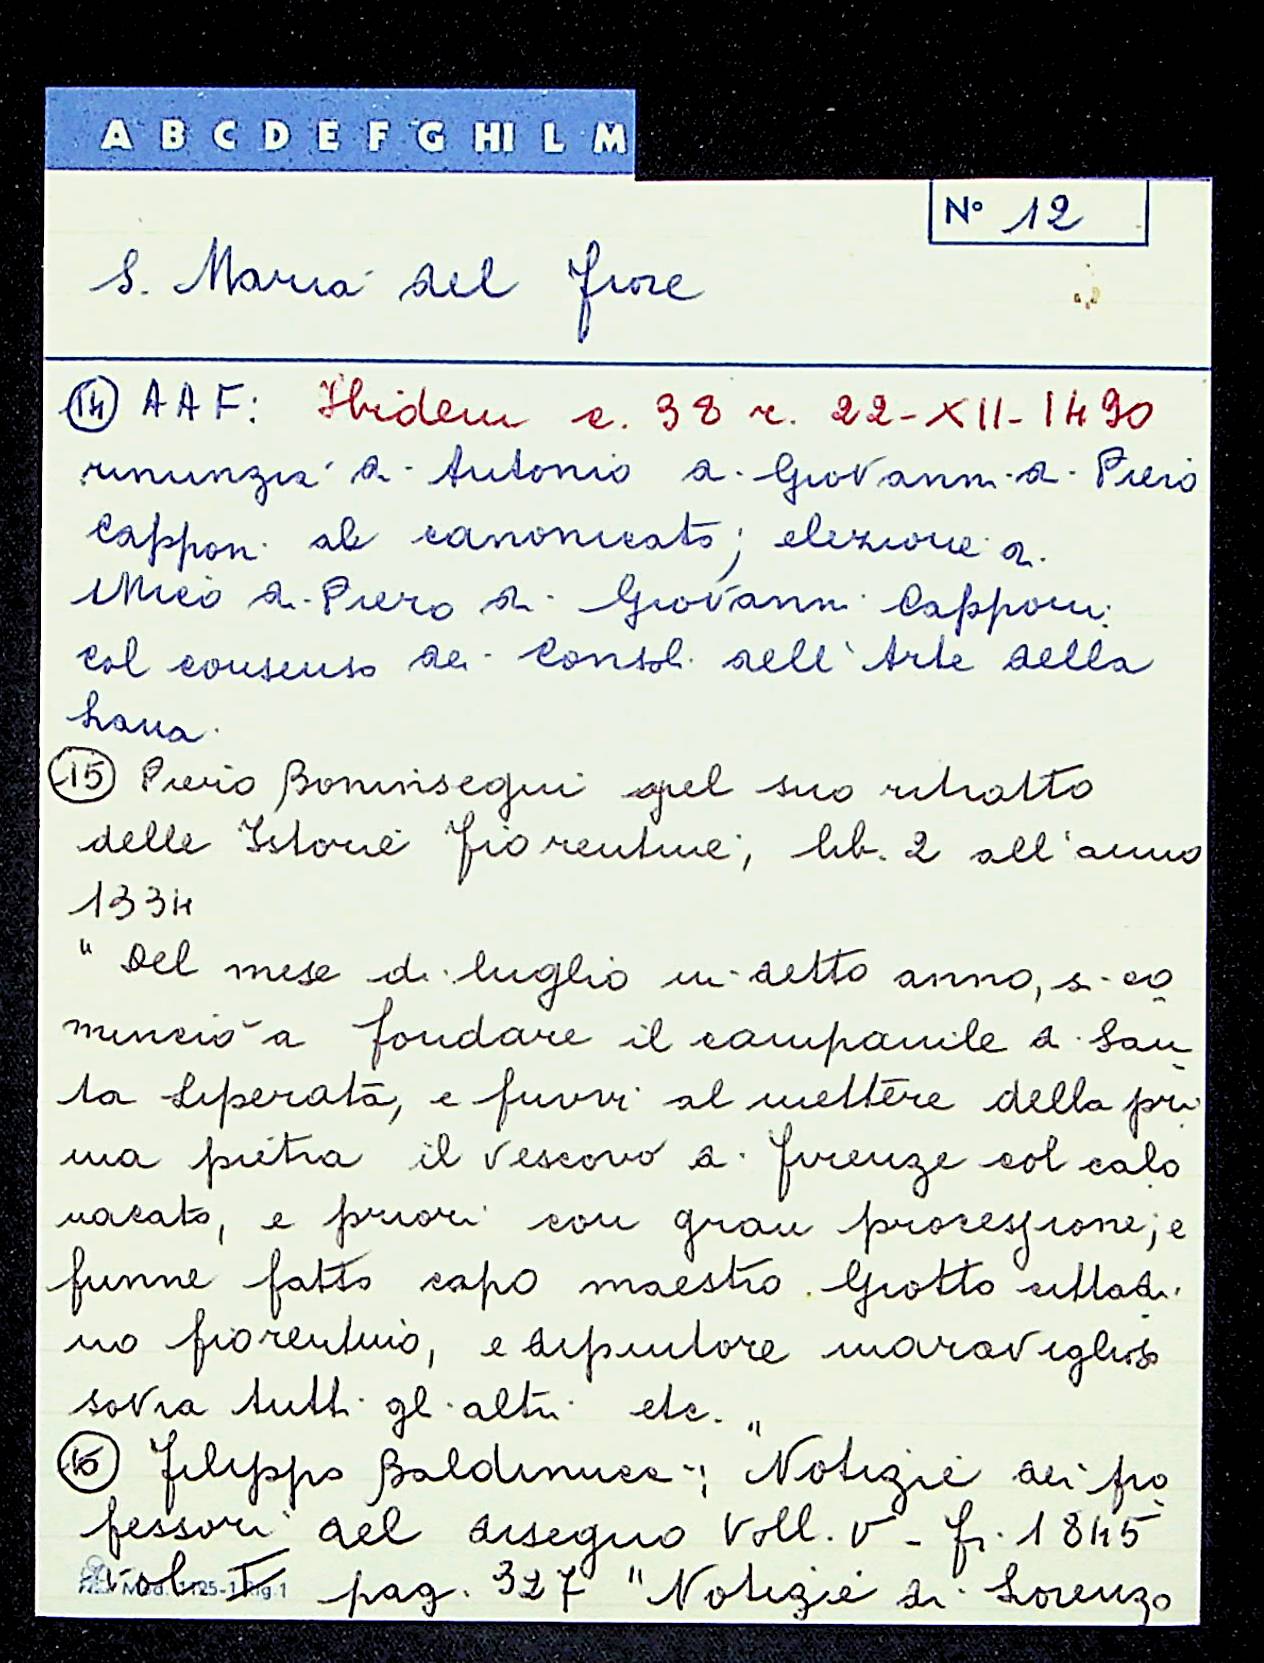 A B C D E F G HI L M
N° 12
S. Maria del Fiore
(14) AAF: Ibidem c. 38 r. 22-XII-1490
rinunzia di Antonio di Giovanni di Piero
Capponi al canonicato; elezione di
Meo di Piero di Giovanni Capponi
col consenso dei Consoli dell'Arte della
Lana.
(15) Piero Boninsegni nel suo ritratto
delle Istorie Fiorentine, lib. 2 all'anno
1334
"Del mese di luglio in detto anno, si co
minciò a fondare il campanile di San
ta Liperata, e fuvvi al mettere della pri
ma pietra il vescovo di Firenze col calo
nacato, e priori con gran processione; e
funne fatto capo maestro Giotto cittadi
no fiorentino, e dipintore maraviglioso
sovra tutti gli altri etc."
(16) Filippo Baldinucci, Notizie dei pro
fessori del disegno Voll. V - Fi. 1845
vol. I pag. 327 "Notizie di Lorenzo
Mod. 1125-1 Rig.1